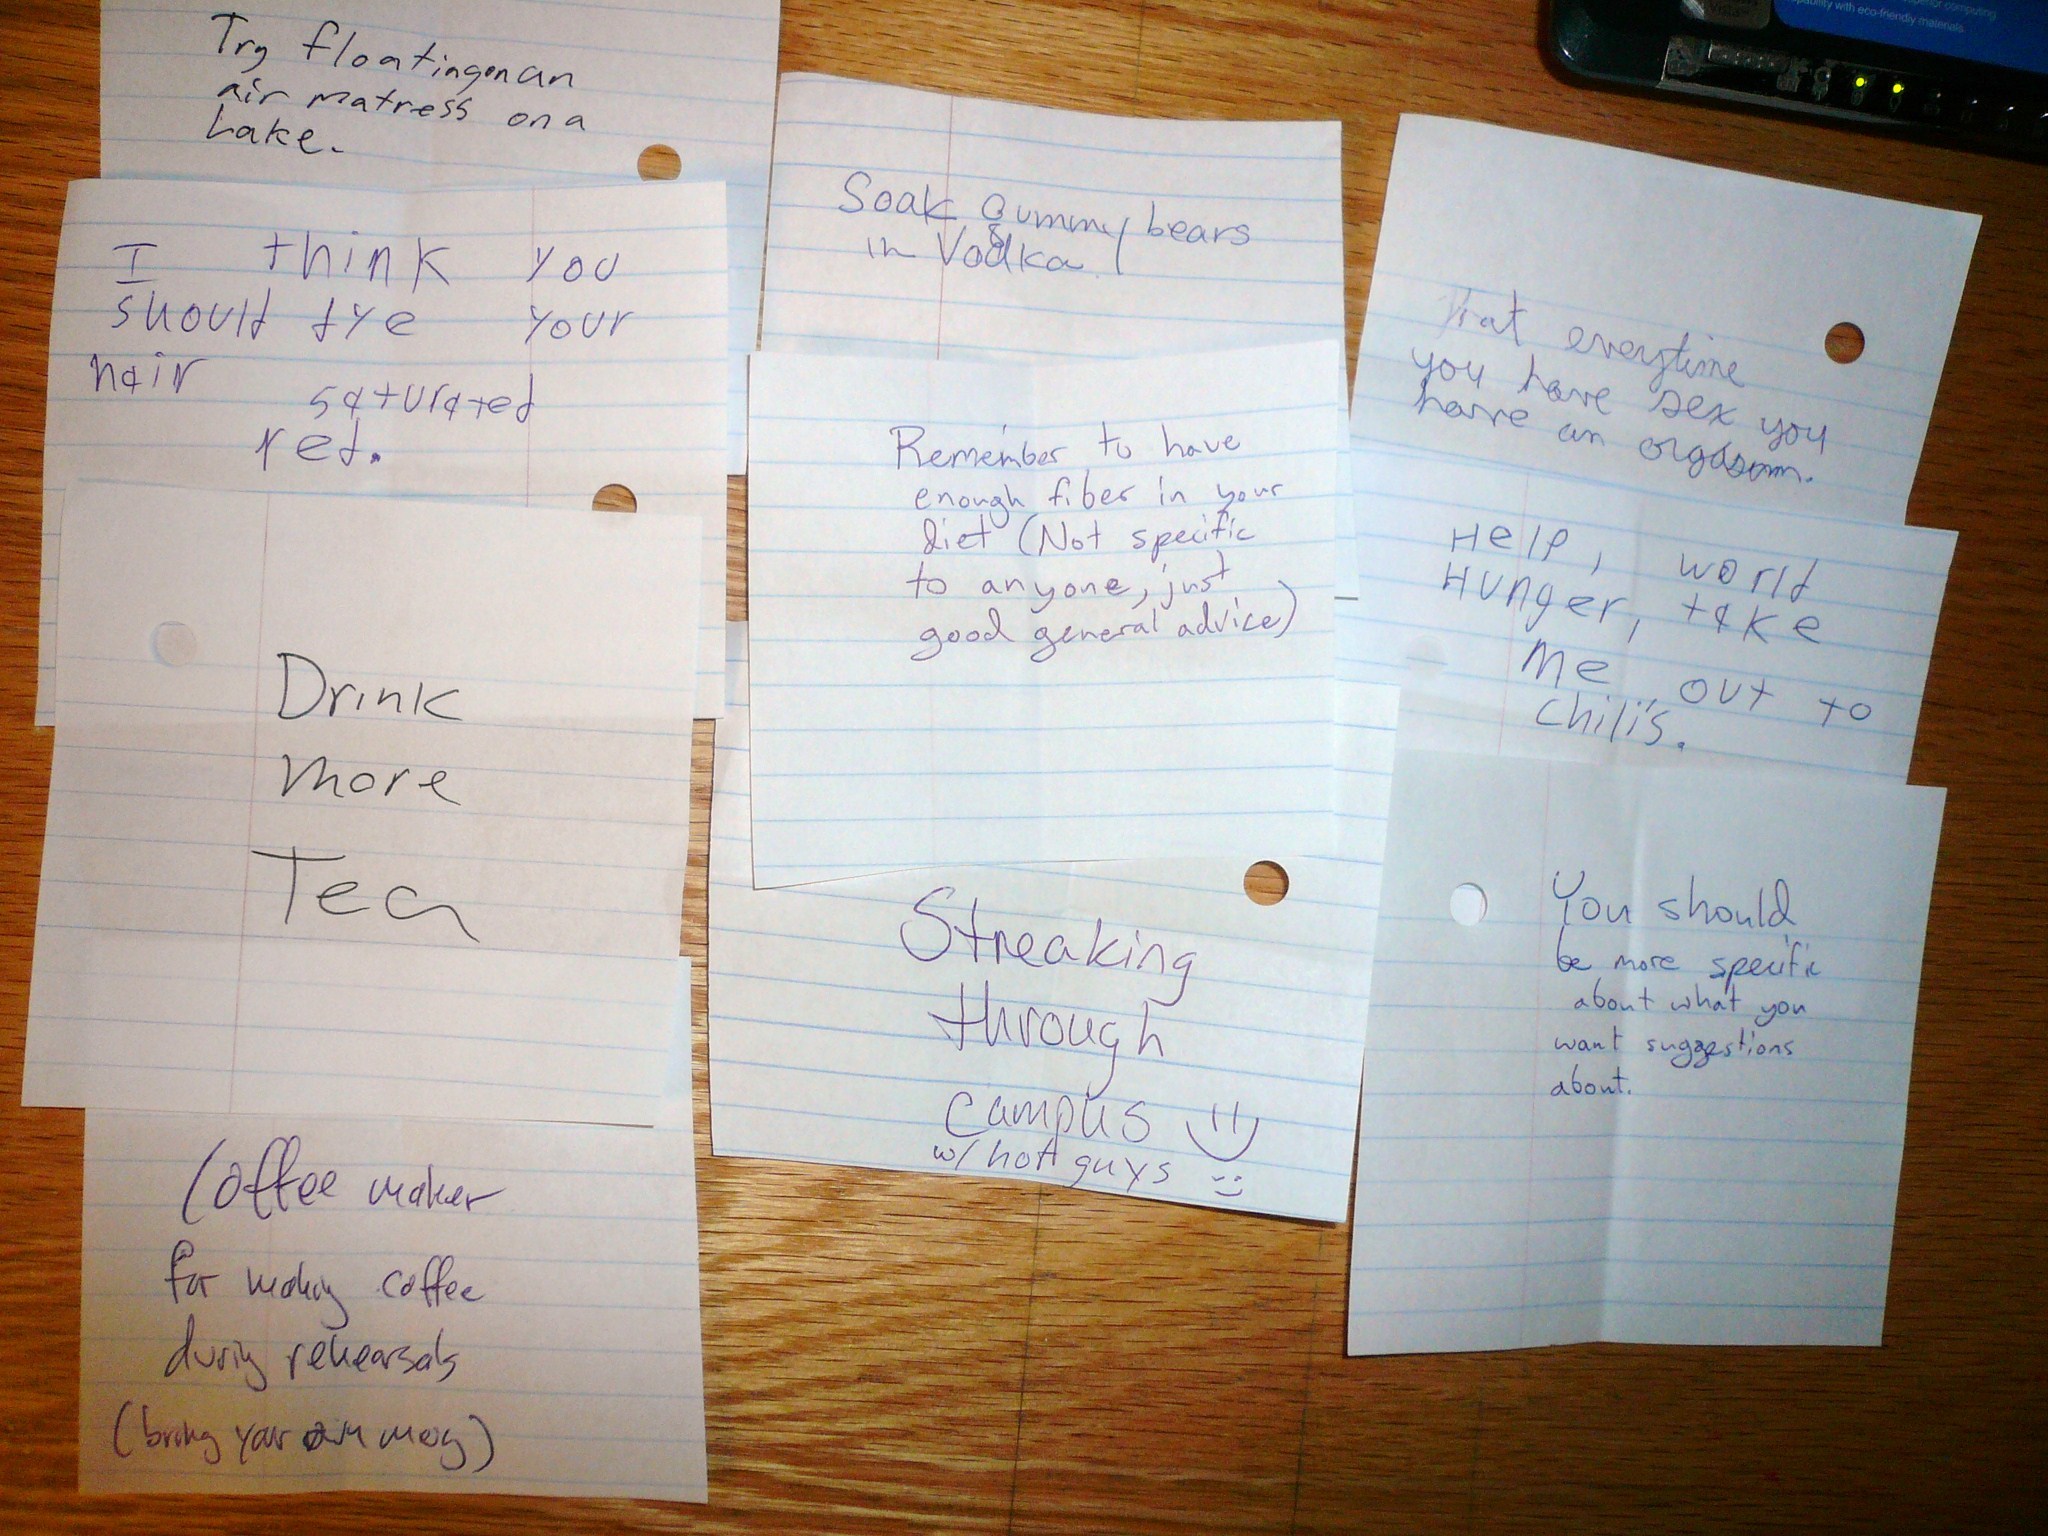 Try floating on an
air matress on a
Lake.
I think you
should dye your
hair
saturated
red.
Drink
more
Tea
Coffee maker
for making coffee
during rehearsals
(bring your own mug)
Soak gummy bears
in Vodka
Remember to have
enough fiber in your
diet (Not specific
to anyone, just
good general advice)
Streaking
through
campus
w/ hott guys
That everytime
you have sex you
have an orgasm.
Help, world
Hunger, take
me out to
Chili's.
You should
be more specific
about what you
want suggestions
about.
computing
capability with eco-friendly materials.